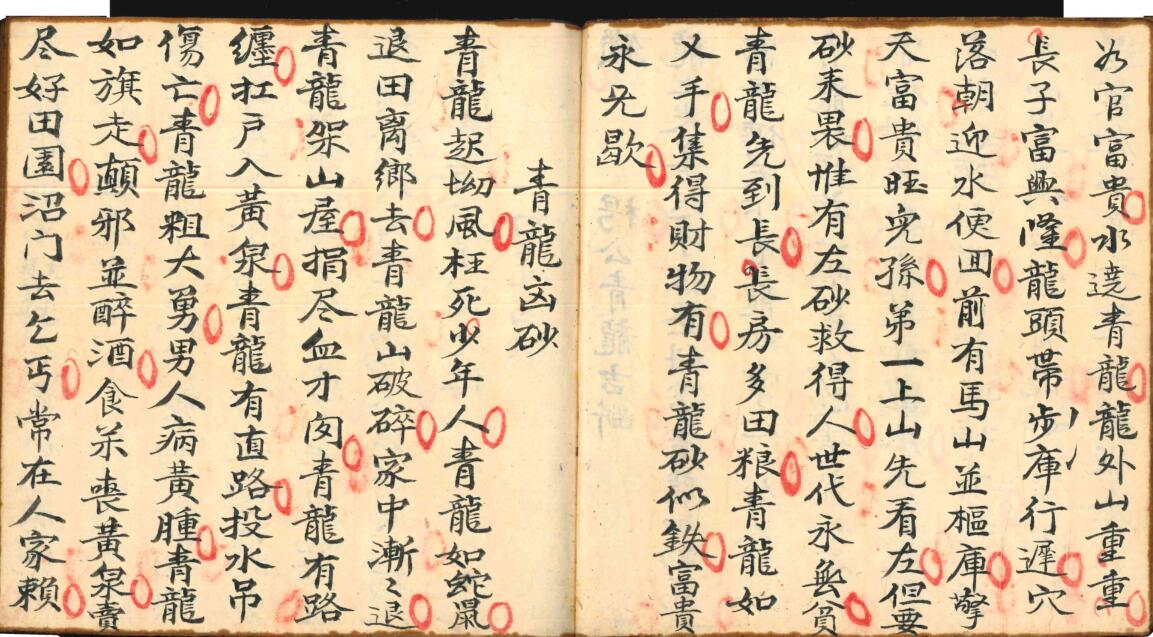 為官富貴水遶青龍龍外山重重
長子富興隆龍頭帶步庫行遲穴
落朝迎水便回前有馬山並樞庫擎
天富貴旺兒孫第一上山先看左但要
砂来畏惟有左砂救得人世代永無貧
青龍先到長長房多田粮青龍如
乂手集得財物有青龍砂似鉄富貴
永兄歇
青龍凶砂
青龍起坳風枉死少年人青龍如蛇鼠
退田离鄉去青龍山破碎家中漸〻退
青龍架山屋捐尽血才囡青龍有路
纏扛户入黄泉青龍有直路投水吊
傷亡青龍粗大勇男人病黄腫青龍
如旗走顛邪並醉酒食茶喪黄泉賣
尽好田園沿门去乞丐常在人家賴